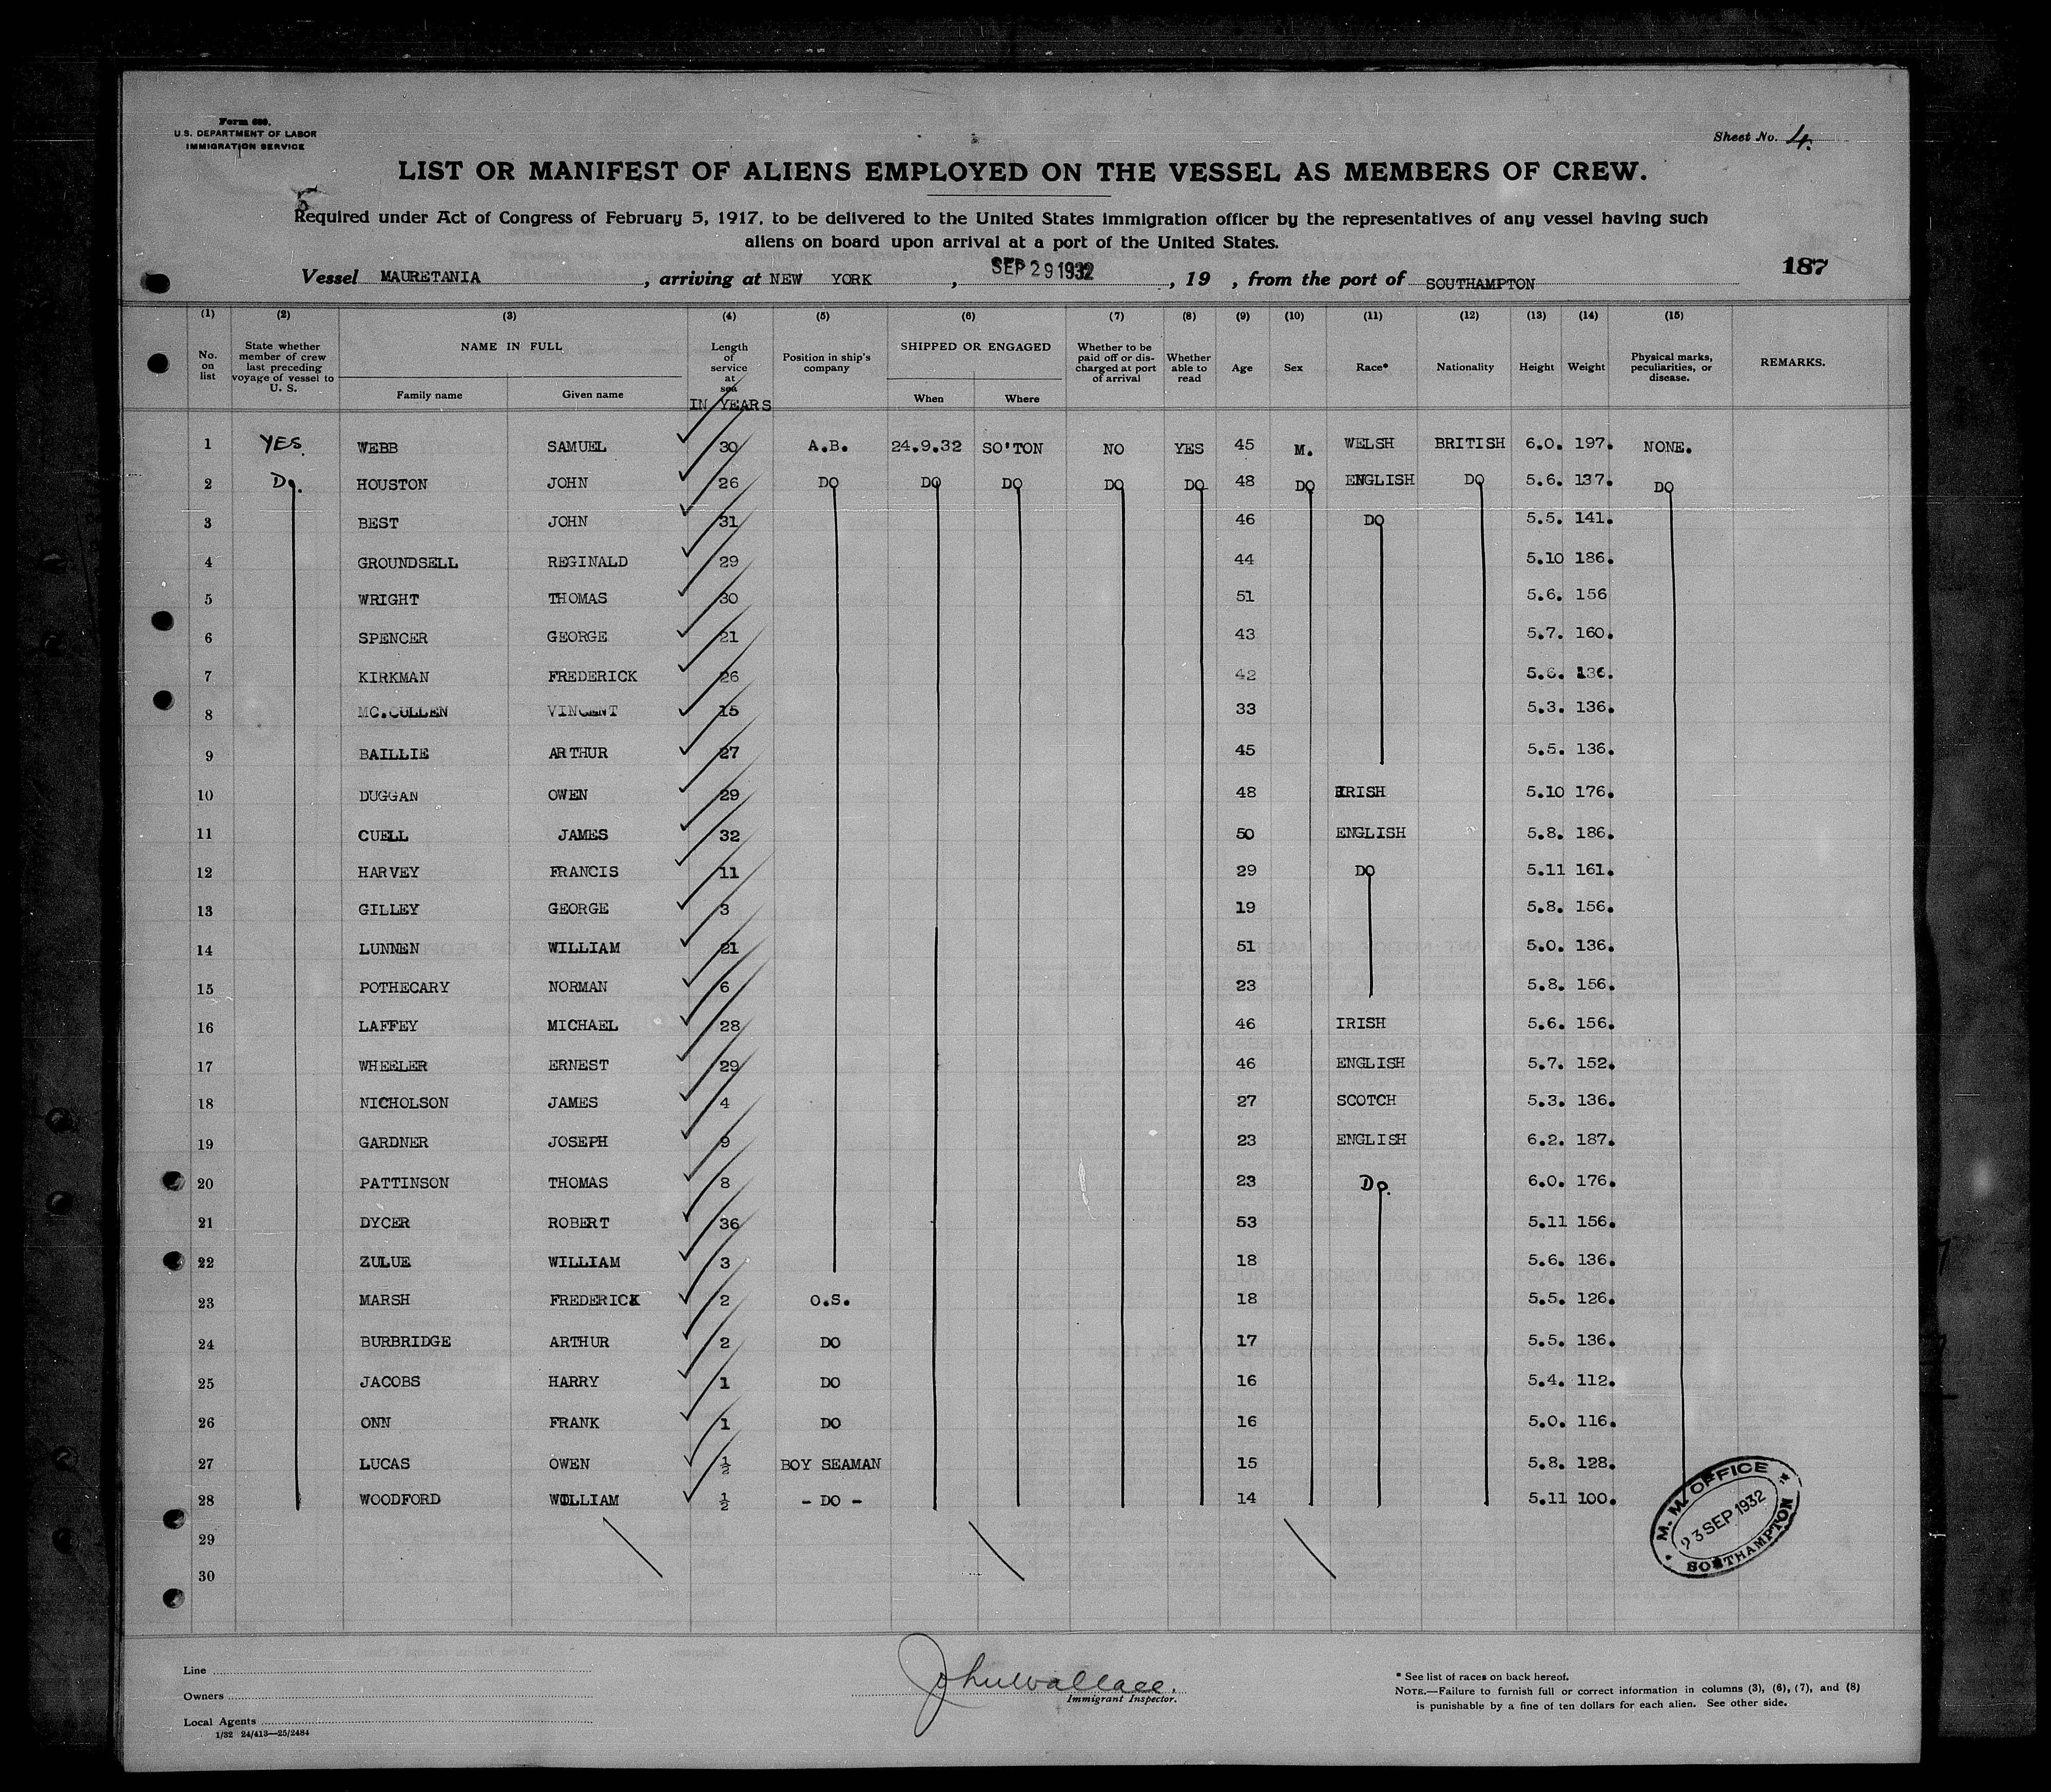 Form 689.
U.S. DEPARTMENT OF LABOR
IMMIGRATION SERVICE
Sheet No. 4.
LIST OR MANIFEST OF ALIENS EMPLOYED ON THE VESSEL AS MEMBERS OF CREW.
Required under Act of Congress of February 5, 1917, to be delivered to the United States immigration officer by the representatives of any vessel having such
aliens on board upon arrival at a port of the United States.
Vessel MAURETANIA, arriving at NEW YORK, SEP 29 1932, 19 , from the port of SOUTHAMPTON
187
(1) (2) (3) (4) (5) (6) (7) (8) (9) (10) (11) (12) (13) (14) (15)
No. on list State whether member of crew last preceding voyage of vessel to U. S. NAME IN FULL Family name Given name Length of service at sea IN YEARS Position in ship's company SHIPPED OR ENGAGED When Where Whether to be paid off or discharged at port of arrival Whether able to read Age Sex Race* Nationality Height Weight Physical marks, peculiarities, or disease. REMARKS.
1 YES. WEBB SAMUEL 30 A.B. 24.9.32 SO'TON NO YES 45 M. WELSH BRITISH 6.0. 197. NONE.
2 Do. HOUSTON JOHN 26 DO DO DO DO DO 48 DO ENGLISH DO 5.6. 137. DO
3 BEST JOHN 31 46 DO 5.5. 141.
4 GROUNDSELL REGINALD 29 44 5.10 186.
5 WRIGHT THOMAS 30 51 5.6. 156
6 SPENCER GEORGE 21 43 5.7. 160.
7 KIRKMAN FREDERICK 26 42 5.6. 136.
8 MC.CULLEN VINCENT 15 33 5.3. 136.
9 BAILLIE ARTHUR 27 45 5.5. 136.
10 DUGGAN OWEN 29 48 IRISH 5.10 176.
11 CUELL JAMES 32 50 ENGLISH 5.8. 186.
12 HARVEY FRANCIS 11 29 DO 5.11 161.
13 GILLEY GEORGE 3 19 5.8. 156.
14 LUNNEN WILLIAM 21 51 5.0. 136.
15 POTHECARY NORMAN 6 23 5.8. 156.
16 LAFFEY MICHAEL 28 46 IRISH 5.6. 156.
17 WHEELER ERNEST 29 46 ENGLISH 5.7. 152.
18 NICHOLSON JAMES 4 27 SCOTCH 5.3. 136.
19 GARDNER JOSEPH 9 23 ENGLISH 6.2. 187.
20 PATTINSON THOMAS 8 23 Do. 6.0. 176.
21 DYCER ROBERT 36 53 5.11 156.
22 ZULUE WILLIAM 3 18 5.6. 136.
23 MARSH FREDERICK 2 O.S. 18 5.5. 126.
24 BURBRIDGE ARTHUR 2 DO 17 5.5. 136.
25 JACOBS HARRY 1 DO 16 5.4. 112.
26 ONN FRANK 1 DO 16 5.0. 116.
27 LUCAS OWEN ½ BOY SEAMAN 15 5.8. 128.
28 WOODFORD WILLIAM ½ - DO - 14 5.11 100.
29
30
M. M. OFFICE
23 SEP 1932
SOUTHAMPTON
Line
Owners
Local Agents
1/32 24/413—25/2484
John Wallace.
Immigrant Inspector.
* See list of races on back hereof.
NOTE.—Failure to furnish full or correct information in columns (3), (6), (7), and (8)
is punishable by a fine of ten dollars for each alien. See other side.